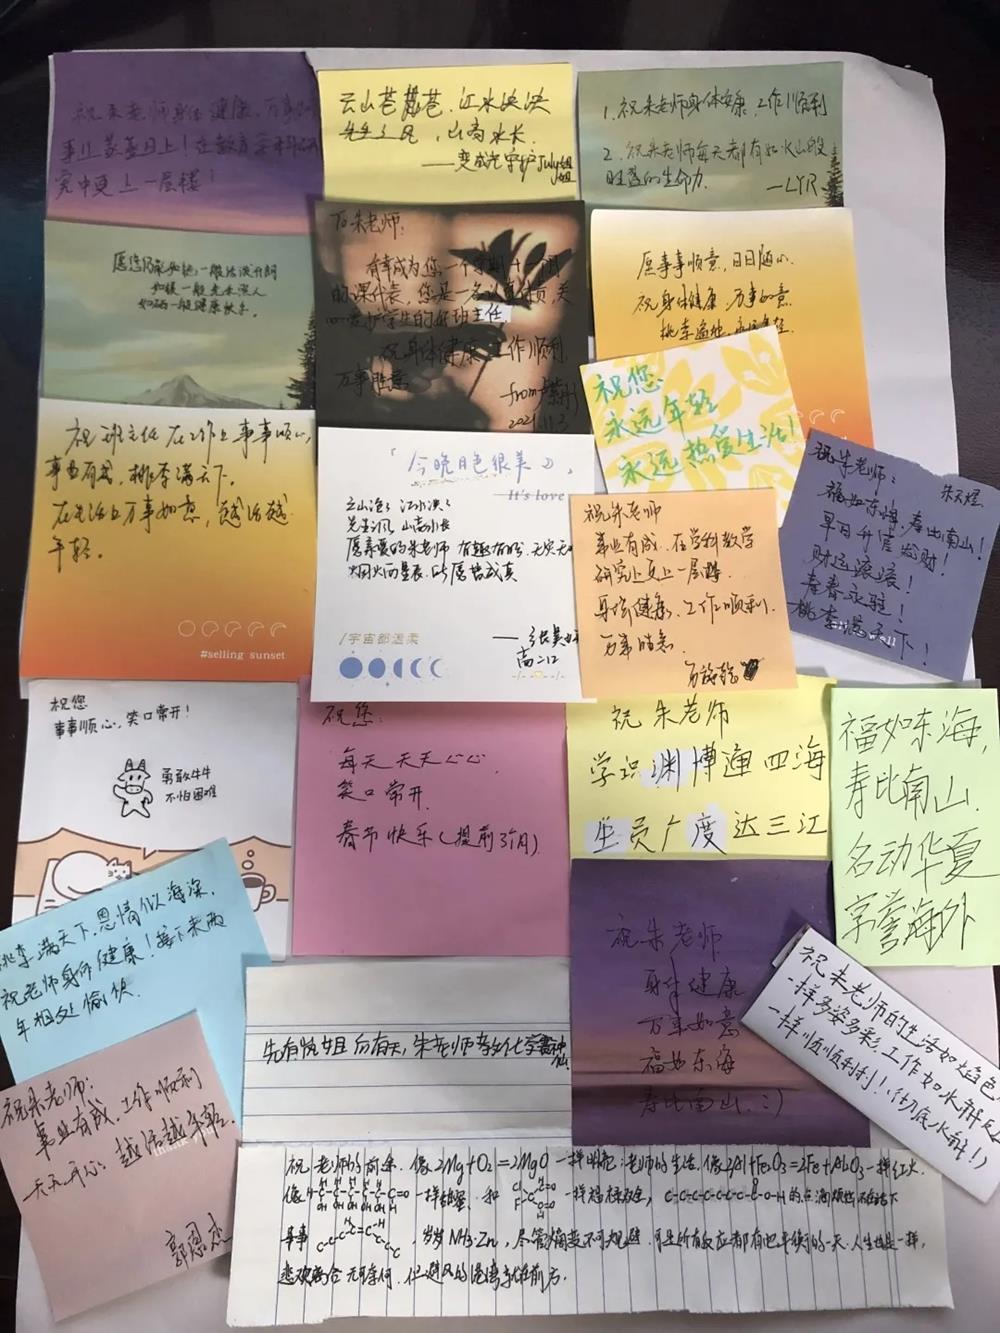 祝朱老师身体健康，万事如
事业蒸蒸日上！在教育
究中更上一层楼！
云山苍苍，江水泱泱
先生之风，山高水长.
——变成光守护July姐姐
1. 祝朱老师身体安康，工作顺利
2. 祝朱老师每天都有如火山般
旺盛的生命力.
—LYR
一般活泼开朗
如 一般 人
如 一般健康快乐.
To 朱老师:
有幸成为您一个学期+一个月
的课代表，您是一名认真负责,关
心爱护学生的好班主任,
祝身体健康,工作顺利,
万事胜意
from
2021.11.3
愿事事顺意,日日随心.
祝身体健康,万事如意
桃李遍地,
祝您
永远年轻
永远热爱生活!
祝班主任在工作上事事顺心,
事业有成,桃李满天下.
在生活上万事如意,越活越
年轻.
#selling sunset
「今晚月色很美」,
It's love
云山 江水
先生之风 山高水长
愿亲爱的朱老师
此愿皆成真
/宇宙都温柔
高二12
祝朱老师
事业有成.在学科教学
研究上更上一层楼.
身体健康.工作顺利.
万事胜意
祝朱老师: 朱天煜
福如东海,寿比南山!
早日升官发财!
财运滚滚!
青春永驻!
桃李满天下!
祝您
事事顺心,笑口常开!
勇敢牛牛
不怕困难
祝您:
每天天天心心
笑口常开
春节快乐(提前3个月)
祝 朱老师
学识渊博通四海
生员广度达三江
福如东海,
寿比南山.
名动华夏
享誉海外
桃李满天下,恩情似海深,
祝老师身体健康!接下来两
年相处愉快.
祝朱老师
身体健康
万事如意
福如东海
寿比南山.:)
祝朱老师的生活如焰色
一样多姿多彩,工作如水解反
一样顺顺利利!(彻底水解!)
先有 后有天,朱老师 化学
祝朱老师:
事业有成,工作顺利
天天开心,越活越年轻.
郭恩
祝老师的前途,像2Mg+O₂=2MgO一样明亮;老师的生活,像2Al+Fe₂O₃=2Fe+Al₂O₃一样红火.
事事 ,岁岁NH₃·Zn,尽管熵变不可规避,可是所有反应都有也平衡的一天.人生也是一样,
悲欢离合无可奈何,但避风的港湾就在前方.